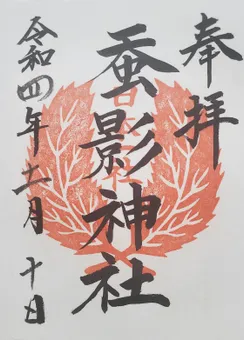 奉拝
蚕影神社
令和四年十一月十日